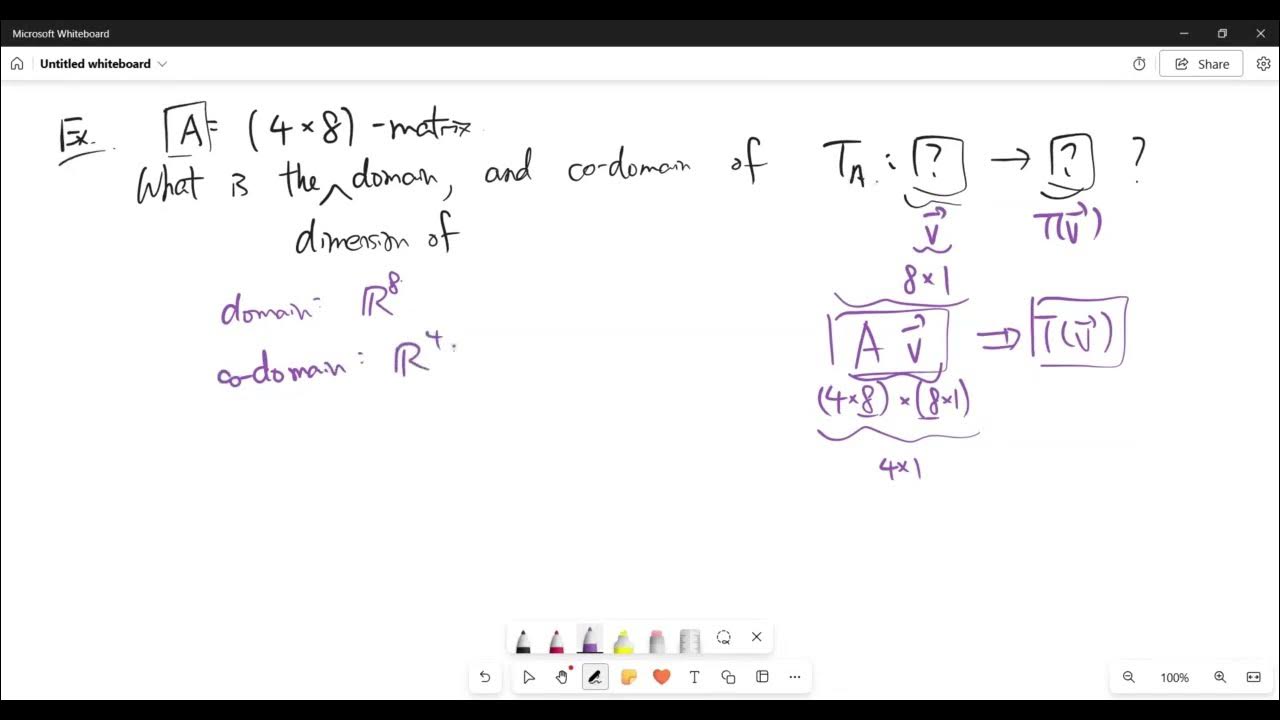 Microsoft Whiteboard
Untitled whiteboard
Share
Ex. A = (4 × 8) - matrix
What is the domain, and co-domain of T_A : ? → ? ?
dimension of
v⃗ T(v⃗)
8×1
domain: ℝ⁸
A v⃗ ⇒ T(v⃗)
co-domain: ℝ⁴
(4×8) × (8×1)
4×1
100%